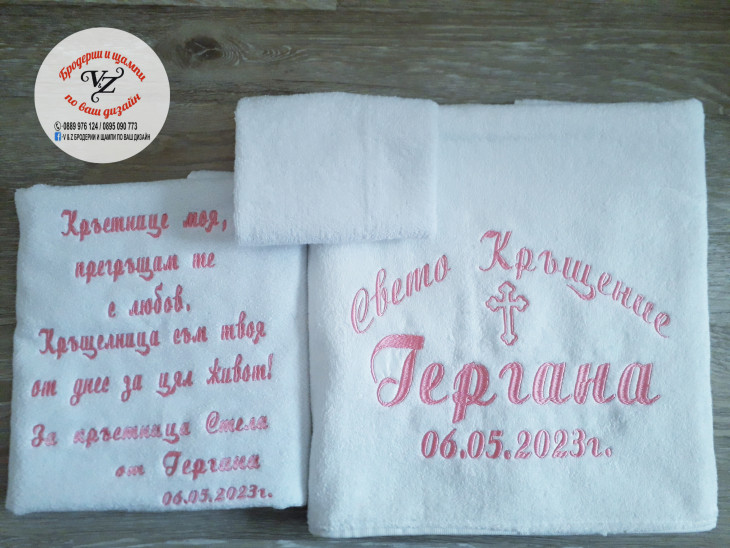 Бродерии и щампи
V&Z
по ваш дизайн
0889 976 124 / 0895 090 773
-V & Z БРОДЕРИИ И ЩАМПИ ПО ВАШ ДИЗАЙН
Кръстнице моя,
прегръщам те
с любов.
Кръщелница съм твоя
от днес за цял живот!
За кръстница Стела
от Гергана
06.05.2023г.
Свето Кръщение
Гергана
06.05.2023г.